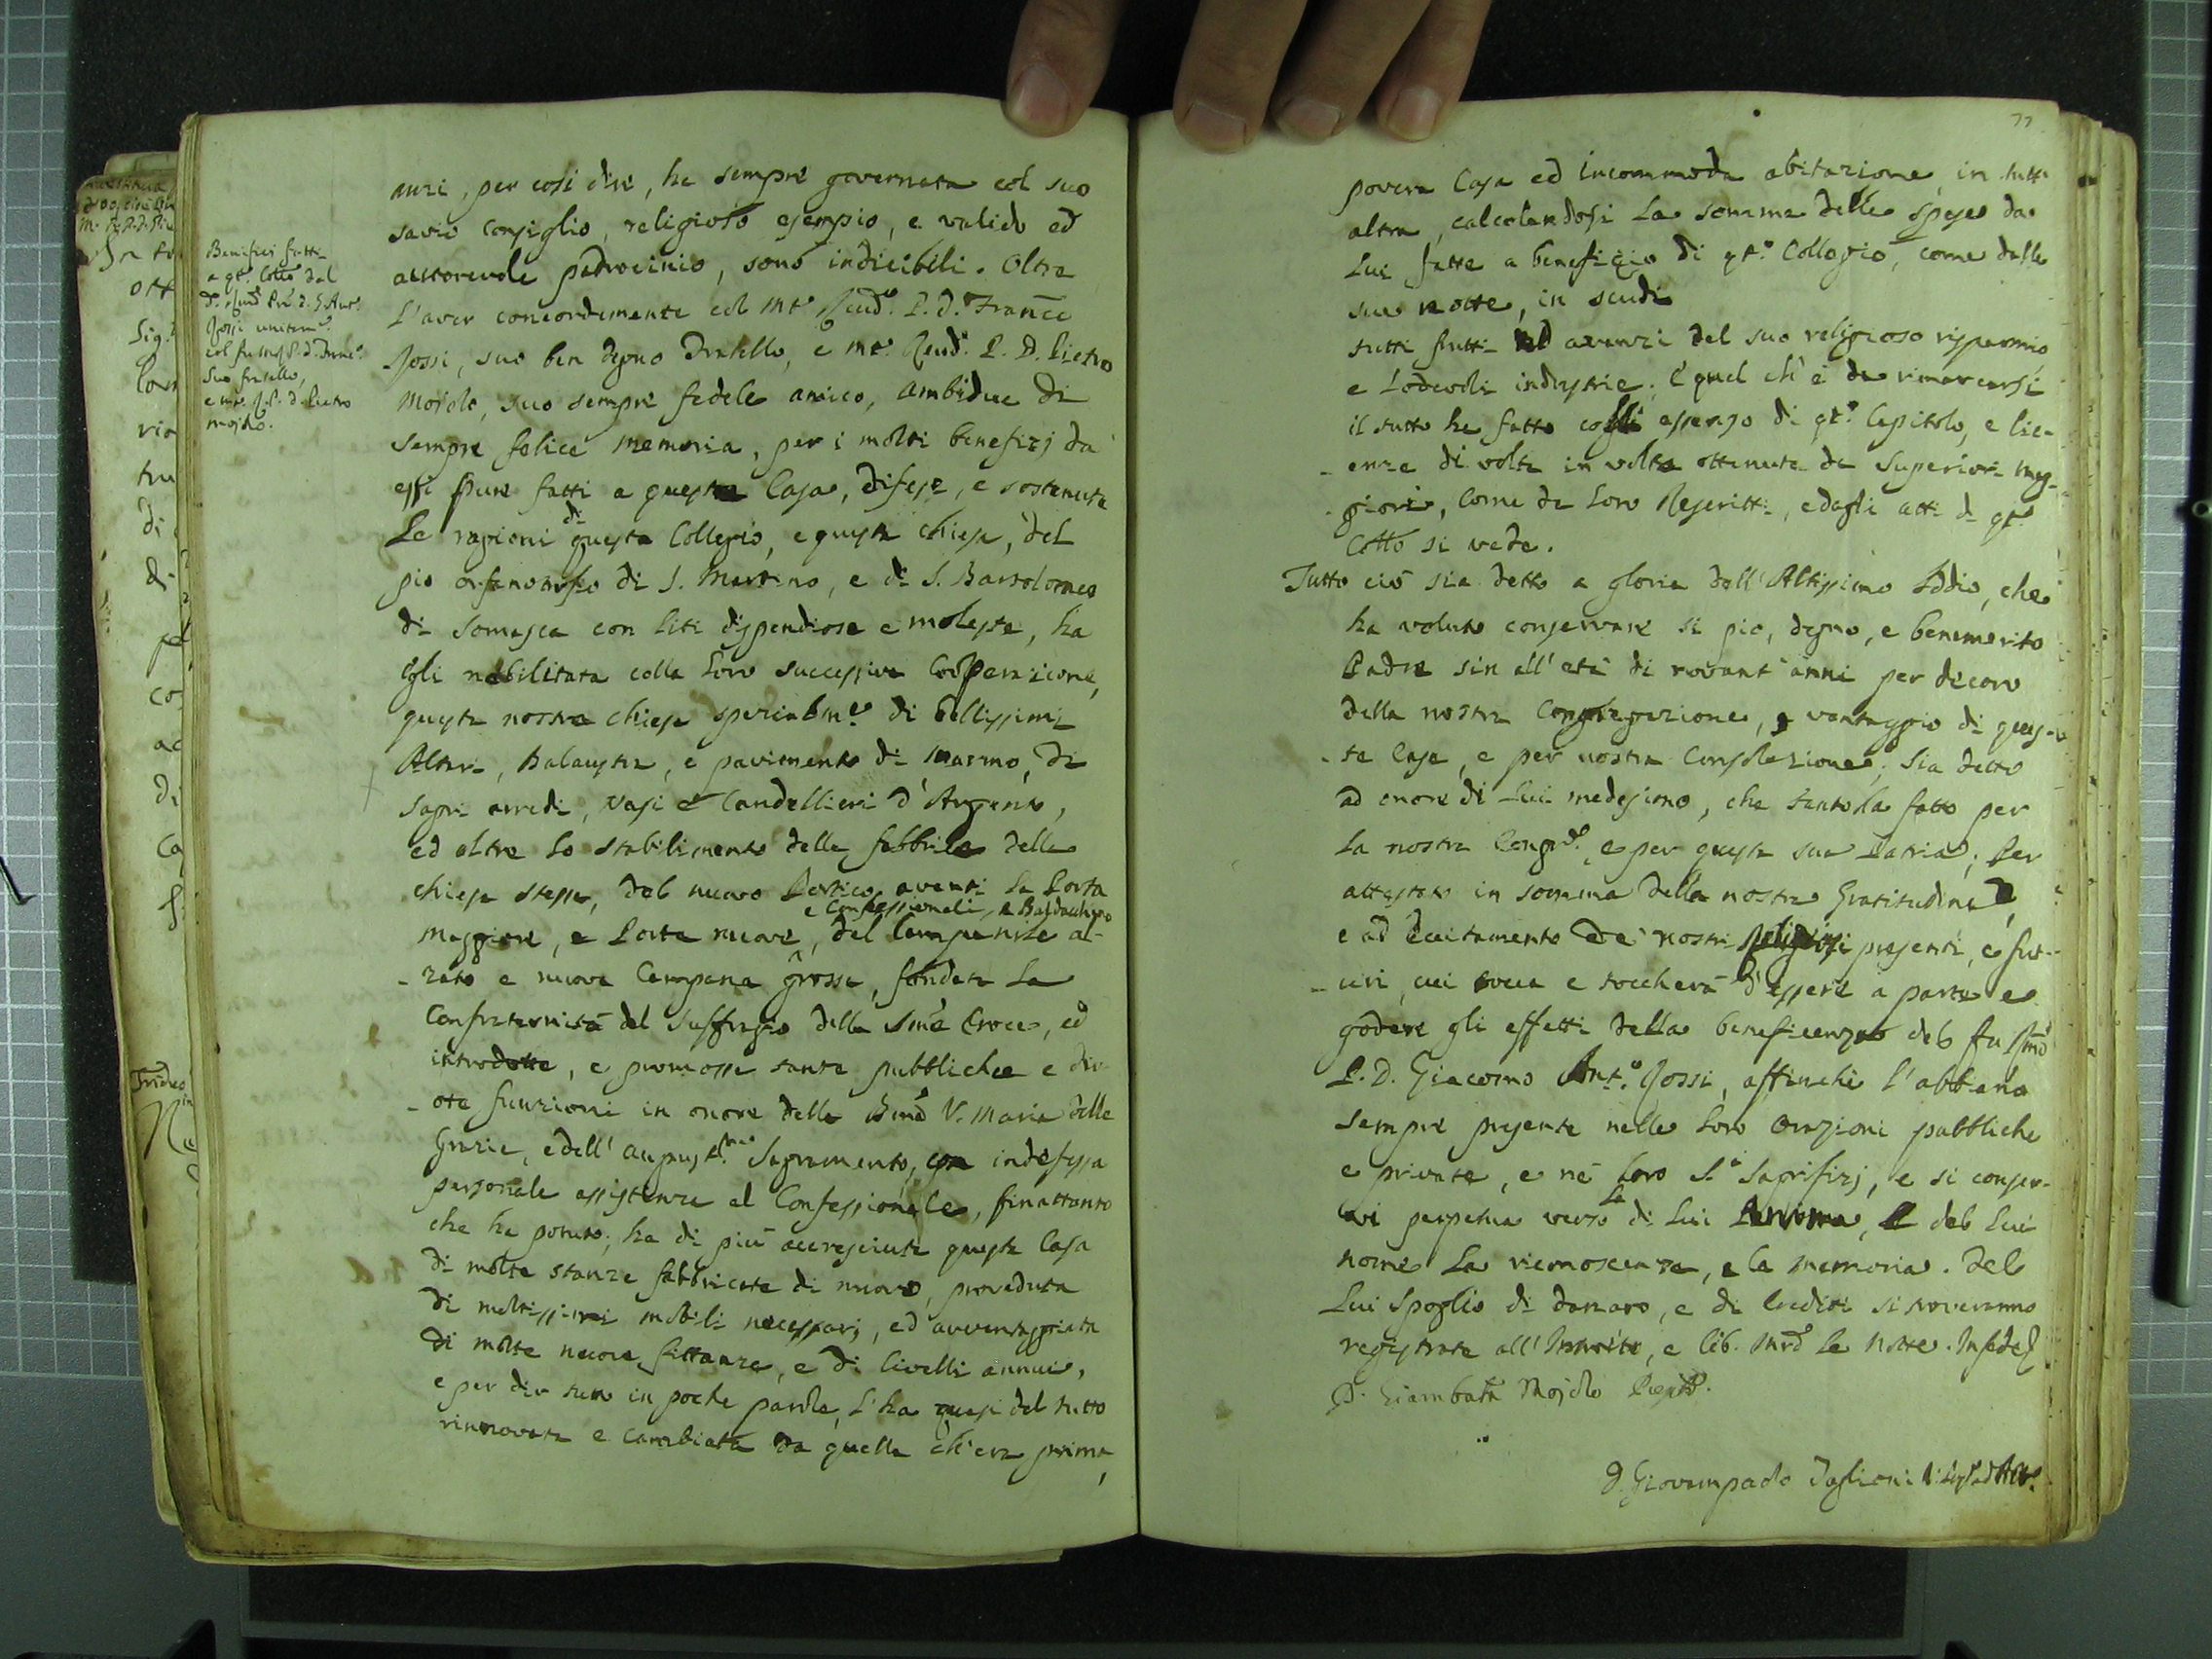 Benifici fatti
a qto. Collo dal
Rossi unitam.e
col fu P. d. Franc.o
suo fratello,
e P. d. Pietro
Mojolo.
anzi, per così dire, ha sempre governata col suo
savio consiglio, religioso esempio, e valido ed
autorevole padrocinio, sono indicibili. Oltre
l'aver concordemente col Mto. Rend.o P. D. Franco
Rossi, suo ben degno Fratello, e Mto. Rend.o P. D. Pietro
Mojolo, suo sempre fedele amico, ambidue di
sempre felice memoria, per i molti benefizj da
essi pure fatti a questa Casa, difese, e sostenute
Le ragioni di questo Collegio, e questa chiesa, del
pio orfanotrofio di S. Martino, e di S. Bartolomeo
di Somasca con liti dispendiose e moleste, ha
Egli nobilitata colla loro successiva Cooperazione,
questa nostra chiesa specialm.e di bellissimi
Altari, Balaustra, e pavimento di marmo, di
sagri arredi, vasi e Candellieri d'Argento,
ed oltre lo stabilimento della fabbrica della
chiesa stessa, del nuovo Portico avanti la Porta
e Confessionali, e Baldachino
maggiore, e Porta nuova, del Campanile al-
-zato e nuova Campana grossa, fondata la
Confraternita del Suffragio della Sma Croce, ed
introdotte, e promosse tante pubbliche e div
-ote funzioni in onore della Bma V. Maria delle
Grazie, e dell' August.mo Sagramento, con indefessa
personale assistenza al Confessionale, finattanto
che ha potuto; ha di più accresciuta questa Casa
di molte stanze fabbricate di nuovo, proveduta
di moltissimi mobili necessarj, ed avvantaggiata
di molte nuove fittanze, e di livelli annui,
e per dir tutto in poche parole, l'ha quasi del tutto
rinnovata e cambiata da quella ch'era prima,
77
povera Casa ed incommoda abitazione, in tutt'
altra, calcolandosi la somma delle spese da
Lui fatte a benefizio di qto. Collegio, come dalle
sue notte, in scudi
tutti frutti ed avanzi del suo religioso risparmio
e lodevoli industrie. E quel ch'è da rimarcarsi
il tutto ha fatto assenso di qto. Capitolo, e lic-
-enze di volta in volta ottenute da Superiori mag-
-giori, come da loro Rescritti, e dagli atti di qto.
Collo si vede.
Tutto ciò sia detto a gloria dell'Altissimo Iddio, che
ha voluto conservare sì pio, degno, e benemerito
Padre sin all'età di novant'anni per decoro
della nostra Congregazione, vantaggio di ques-
-ta Casa, e per nostra Consolazione; Sia detto
ad onore di Lui medesimo, che tanto ha fatto per
la nostra Congne., e per questa sua Patria; Per
attestato in somma della nostra Gratitudine,
e ad eccitamento de' nostri Religiosi presenti, e fut-
-uri, cui tocca e toccherà d'essere a parte e
godere gli effetti della beneficenza del fu Rmo
P. D. Giacomo Ant.o Rossi, affinchè l'abbiano
sempre presente nelle loro Orazioni pubbliche
e private, e ne' loro S.i Sagrifizj, e si conser-
-vi perpetua verso la di Lui Anima, e del Lui
nome la riconoscenza, e la memoria. Del
Lui Spoglio di danaro, e di Crediti si troveranno
registrate all'Introito, e lib. Mro le notte. In fede
D. Giambatta Mojolo Prepto.
D. Giovampaolo Taglioni